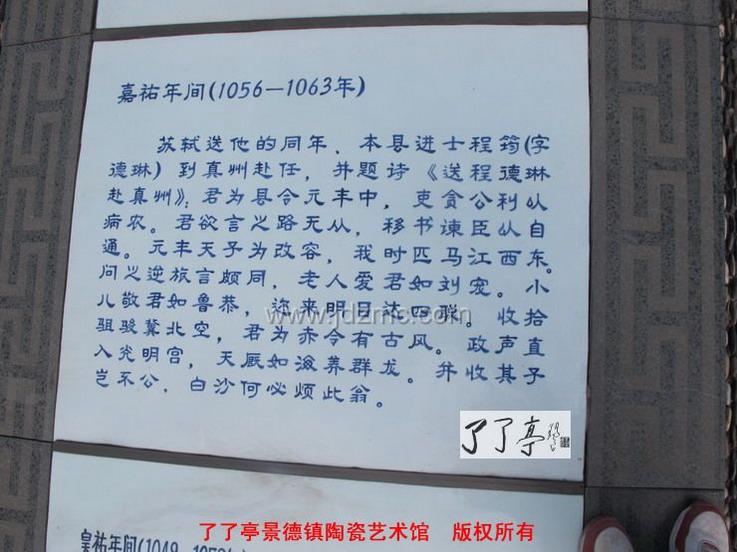 嘉祐年间(1056—1063年)
苏轼送他的同年、本县进士程筠(字
德琳)到真州赴任，并题诗《送程德琳
赴真州》：君为县令元丰中，吏贪公利以
病农。君欲言之路无从，移书谏臣以自
通。元丰天子为改容，我时匹马江西东。
问之逆旅言颇同，老人爱君如刘宠。小
儿敬君如鲁恭，迩来明目达四聪。收拾
驵骏冀北空，君为赤令有古风。政声直
入光明宫，天厩如海养群龙。并收其子
岂不公，白沙何必烦此翁。
www.jdzmc.com
了了亭
皇祐年间(1049
了了亭景德镇陶瓷艺术馆 版权所有